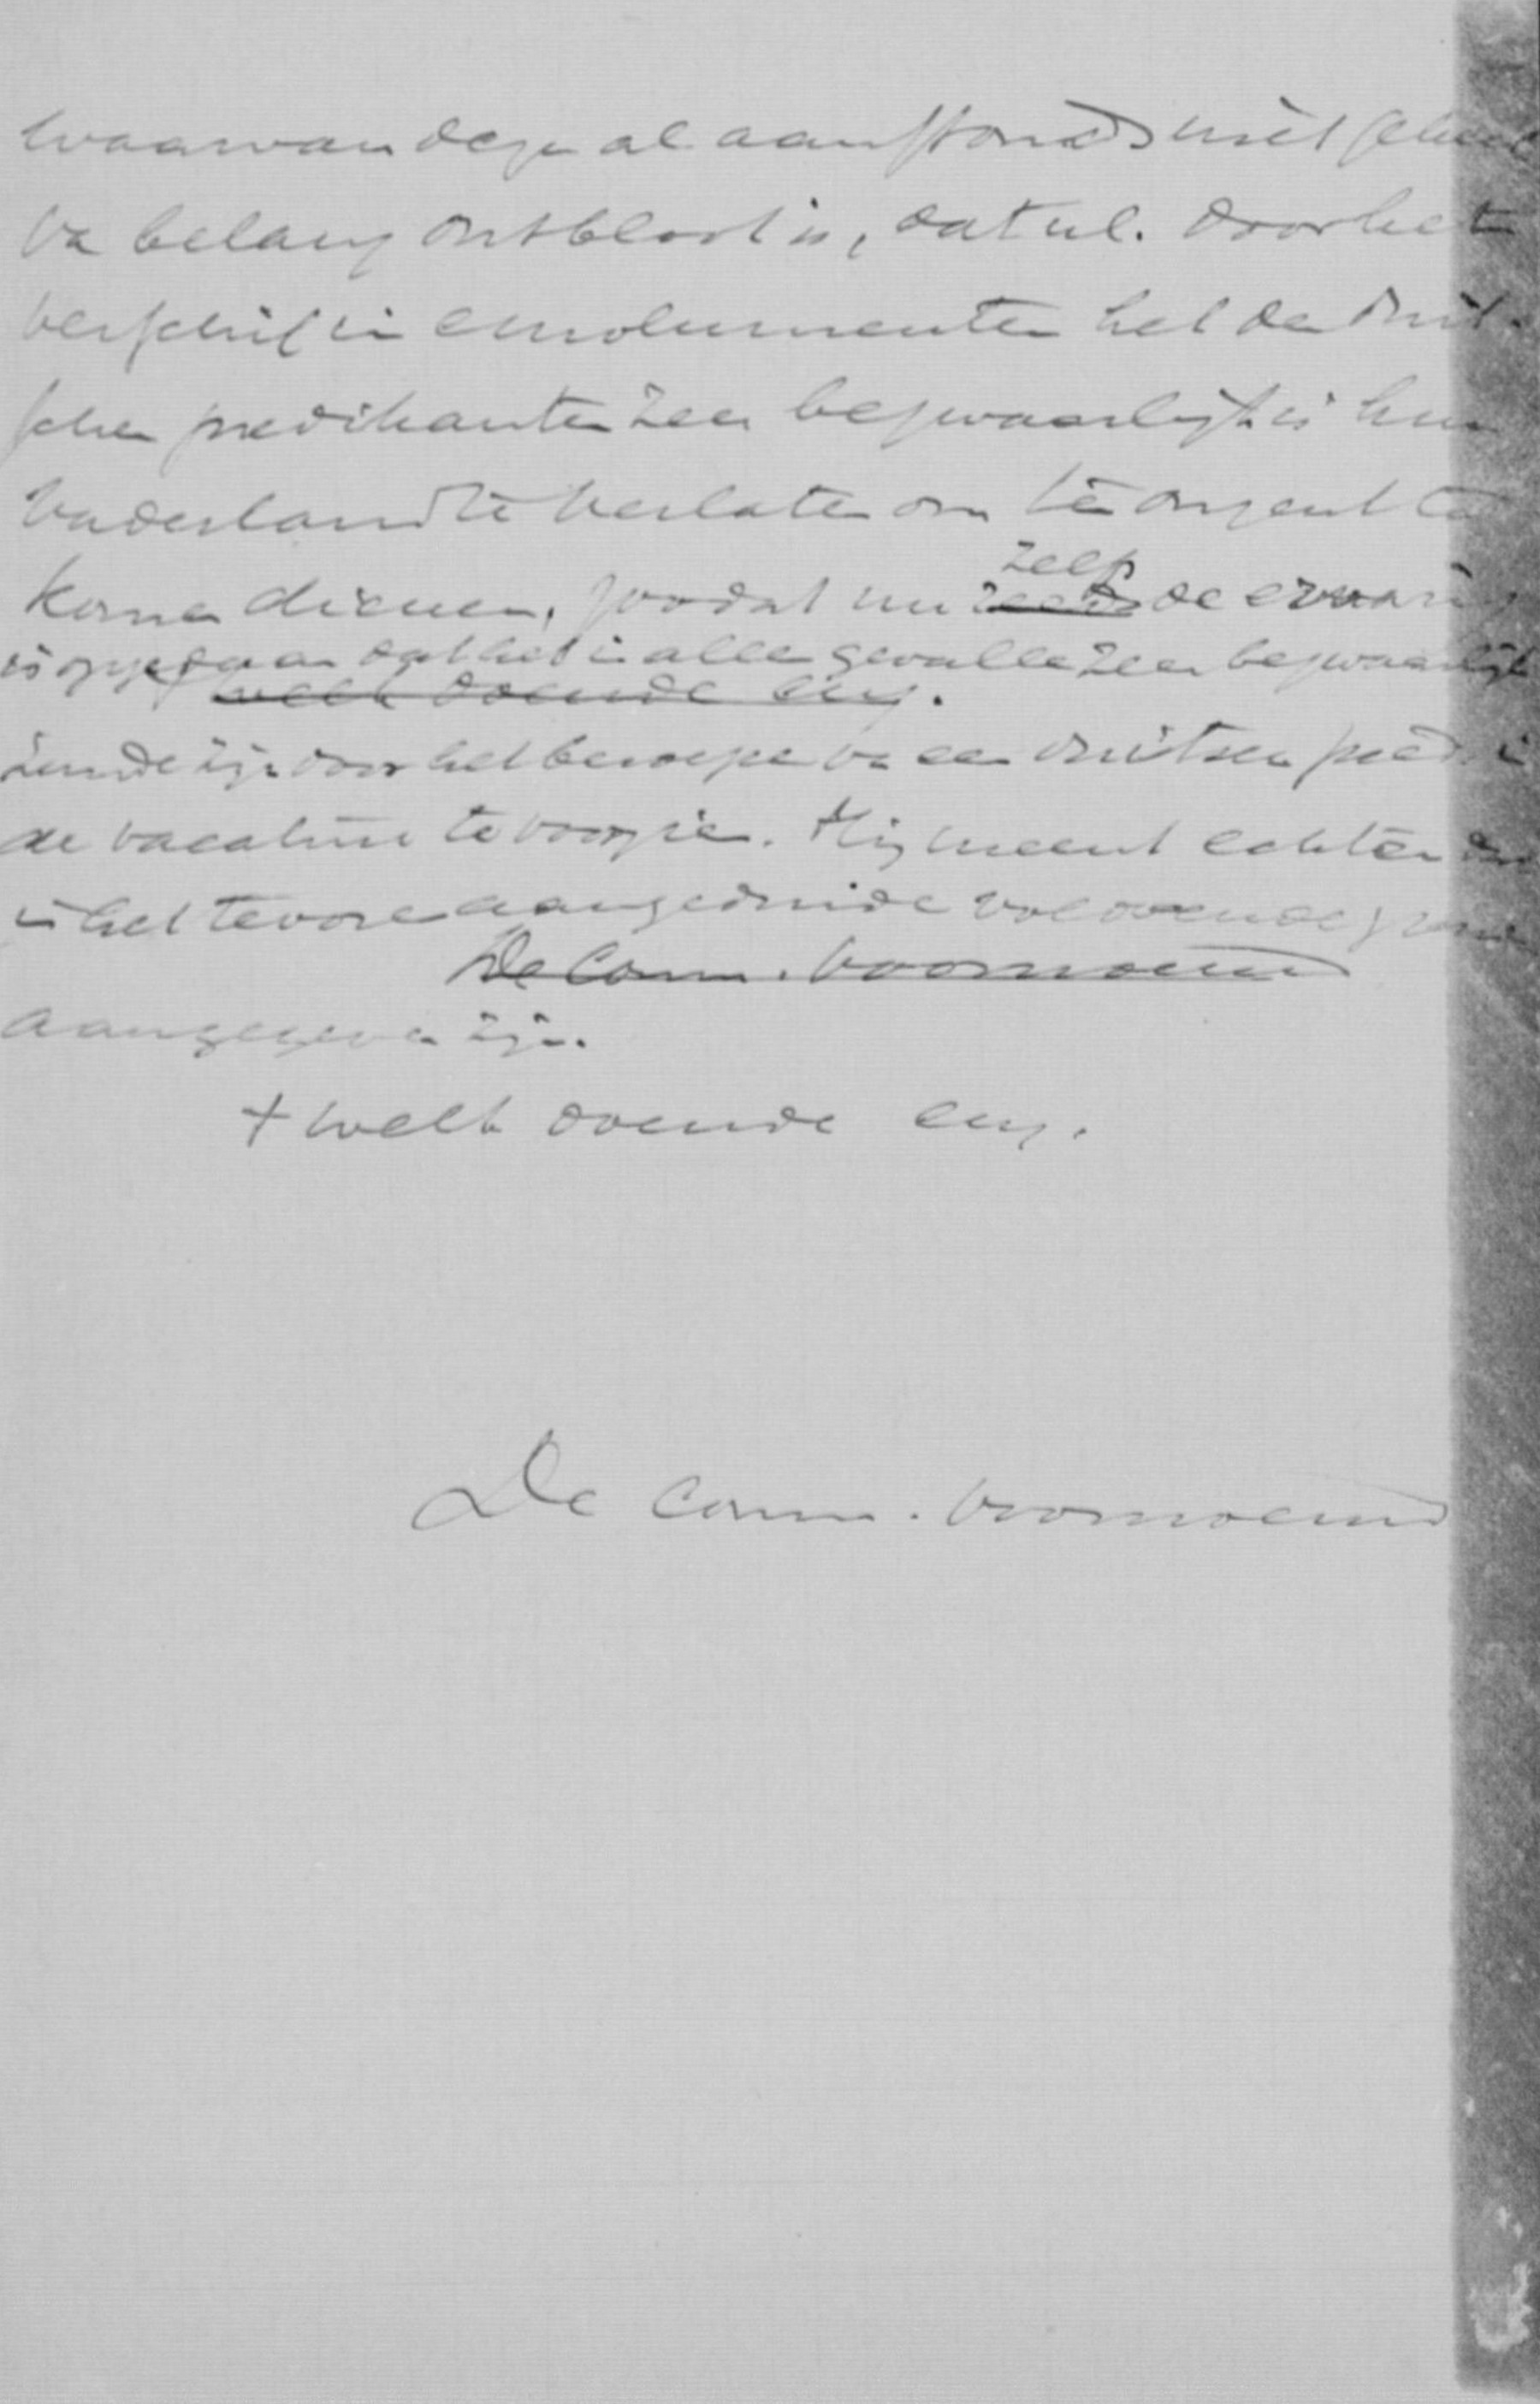 waarvan deze al aanstonds niet geheel
va belang ontbloot is, dat nl. door het
verschil in emolumenten het de Duit-
sche predikanten zeer bezwaarlijk is hun
Vaderland te verlaten om te onzent te
komen dienen, zoodat nu zelfs de ervaring
is opgedaan dat het in alle gevallen zeer bezwaarlijk
welk doende enz.
zoude zijn door het beroepe va een Duitsen pred. in
de vacature te voorzien. Hij meent echter dat
in het tevoren aangeduide voldoende gronden
De Comm. voornoemd
aangegeven zijn.
+ welk doende enz.
De Comm. voornoemd